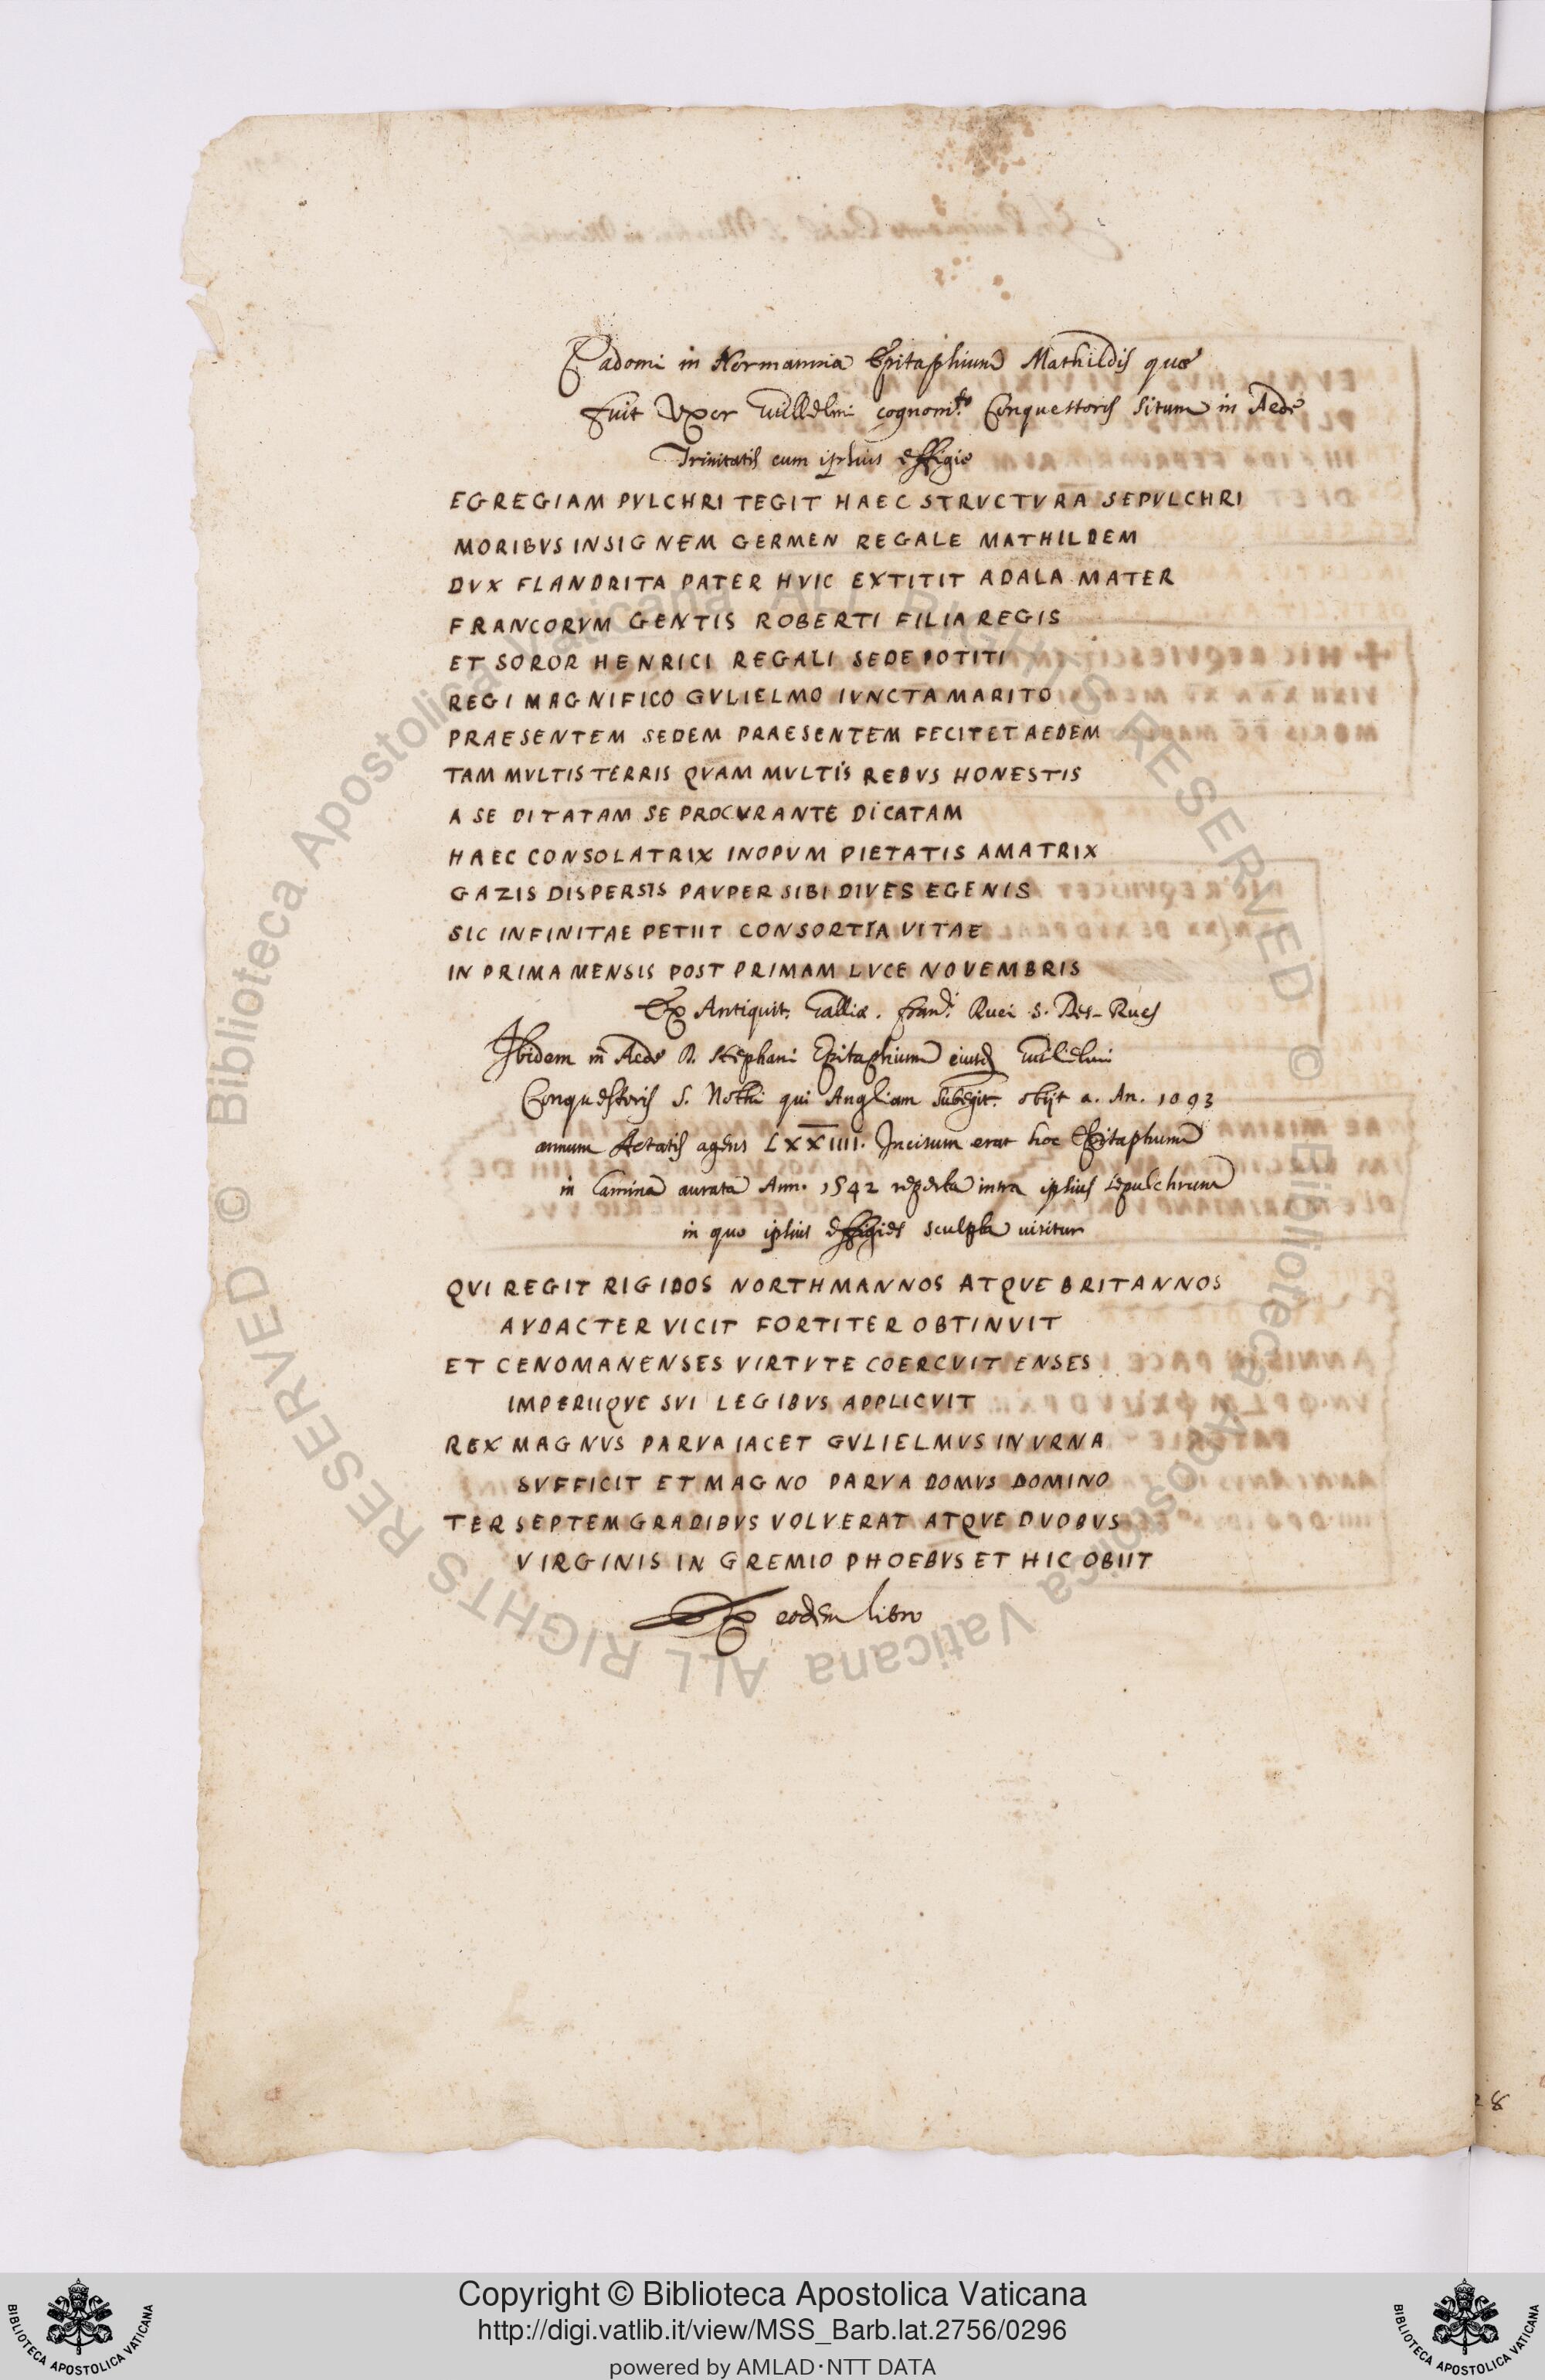 Cadomi in Normannia Epitaphium Mathildis quae
fuit Uxor Guillelmi cognom.to Conquestoris situm in Aede
Trinitatis cum ipsius effigie
EGREGIAM PVLCHRI TEGIT HAEC STRVCTVRA SEPVLCHRI
MORIBVS INSIGNEM GERMEN REGALE MATHILDEM
DVX FLANDRITA PATER HVIC EXTITIT ADALA MATER
FRANCORVM GENTIS ROBERTI FILIA REGIS
ET SOROR HENRICI REGALI SEDE POTITI
REGI MAGNIFICO GVLIELMO IVNCTA MARITO
PRAESENTEM SEDEM PRAESENTEM FECIT ET AEDEM
TAM MVLTIS TERRIS QVAM MVLTIS REBVS HONESTIS
A SE DITATAM SE PROCVRANTE DICATAM
HAEC CONSOLATRIX INOPVM PIETATIS AMATRIX
GAZIS DISPERSIS PAVPER SIBI DIVES EGENIS
SIC INFINITAE PETIIT CONSORTIA VITAE
IN PRIMA MENSIS POST PRIMAM LVCE NOVEMBRIS
Ex Antiquit. Galliae. Ruei S. Des-Rues
Ibidem in Aede D. Stephani Epitaphium eiusd Guilielmi
Conquestoris S. Nothi qui Angliam subegit. obijt a. An. 1093
annum Aetatis agens LXXIIII. Incisum erat hoc Epitaphium
in lamina aurata Ann. 1542 reperta intra ipsius sepulchrum
in quo ipsius effigies sculpta uisitur
QVI REGIT RIGIDOS NORTHMANNOS ATQVE BRITANNOS
AVDACTER VICIT FORTITER OBTINVIT
ET CENOMANENSES VIRTVTE COERCVIT ENSES
IMPERIIQVE SVI LEGIBVS APPLICVIT
REX MAGNVS PARVA IACET GVLIELMVS IN VRNA
SVFFICIT ET MAGNO PARVA DOMVS DOMINO
TER SEPTEM GRADIBVS VOLVERAT ATQVE DVOBVS
VIRGINIS IN GREMIO PHOEBVS ET HIC OBIIT
Ex eodem libro
28
© Biblioteca Apostolica Vaticana ALL RIGHTS RESERVED
© Biblioteca Apostolica Vaticana ALL RIGHTS RESERVED
BIBLIOTECA APOSTOLICA VATICANA
Copyright © Biblioteca Apostolica Vaticana
http://digi.vatlib.it/view/MSS_Barb.lat.2756/0296
powered by AMLAD·NTT DATA
BIBLIOTECA APOSTOLICA VATICANA